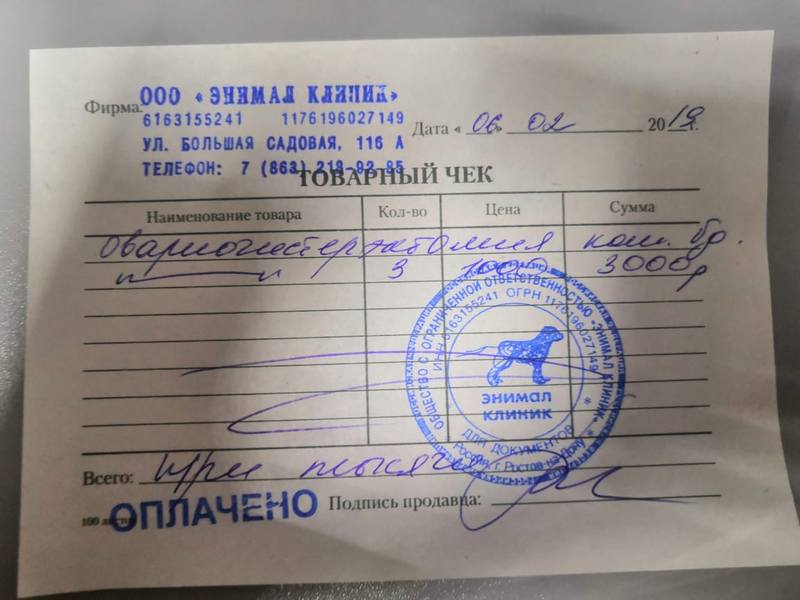 Фирма ООО «ЭНИМАЛ КЛИНИК»
6163155241 1176196027149
УЛ. БОЛЬШАЯ САДОВАЯ, 116 А
ТЕЛЕФОН: 7 (863) 218-92-85
Дата « 06 » 02 2019 г.
ТОВАРНЫЙ ЧЕК
Наименование товара Кол-во Цена Сумма
Овариогистерэктомия кош. бр.
3 1000 3000р
ОБЩЕСТВО С ОГРАНИЧЕННОЙ ОТВЕТСТВЕННОСТЬЮ «ЭНИМАЛ КЛИНИК»
ИНН 6163155241 ОГРН 1176196027149
ЭНИМАЛ
КЛИНИК
ДЛЯ ДОКУМЕНТОВ
Россия, г. Ростов-на-Дону
Всего: три тысячи
ОПЛАЧЕНО Подпись продавца: